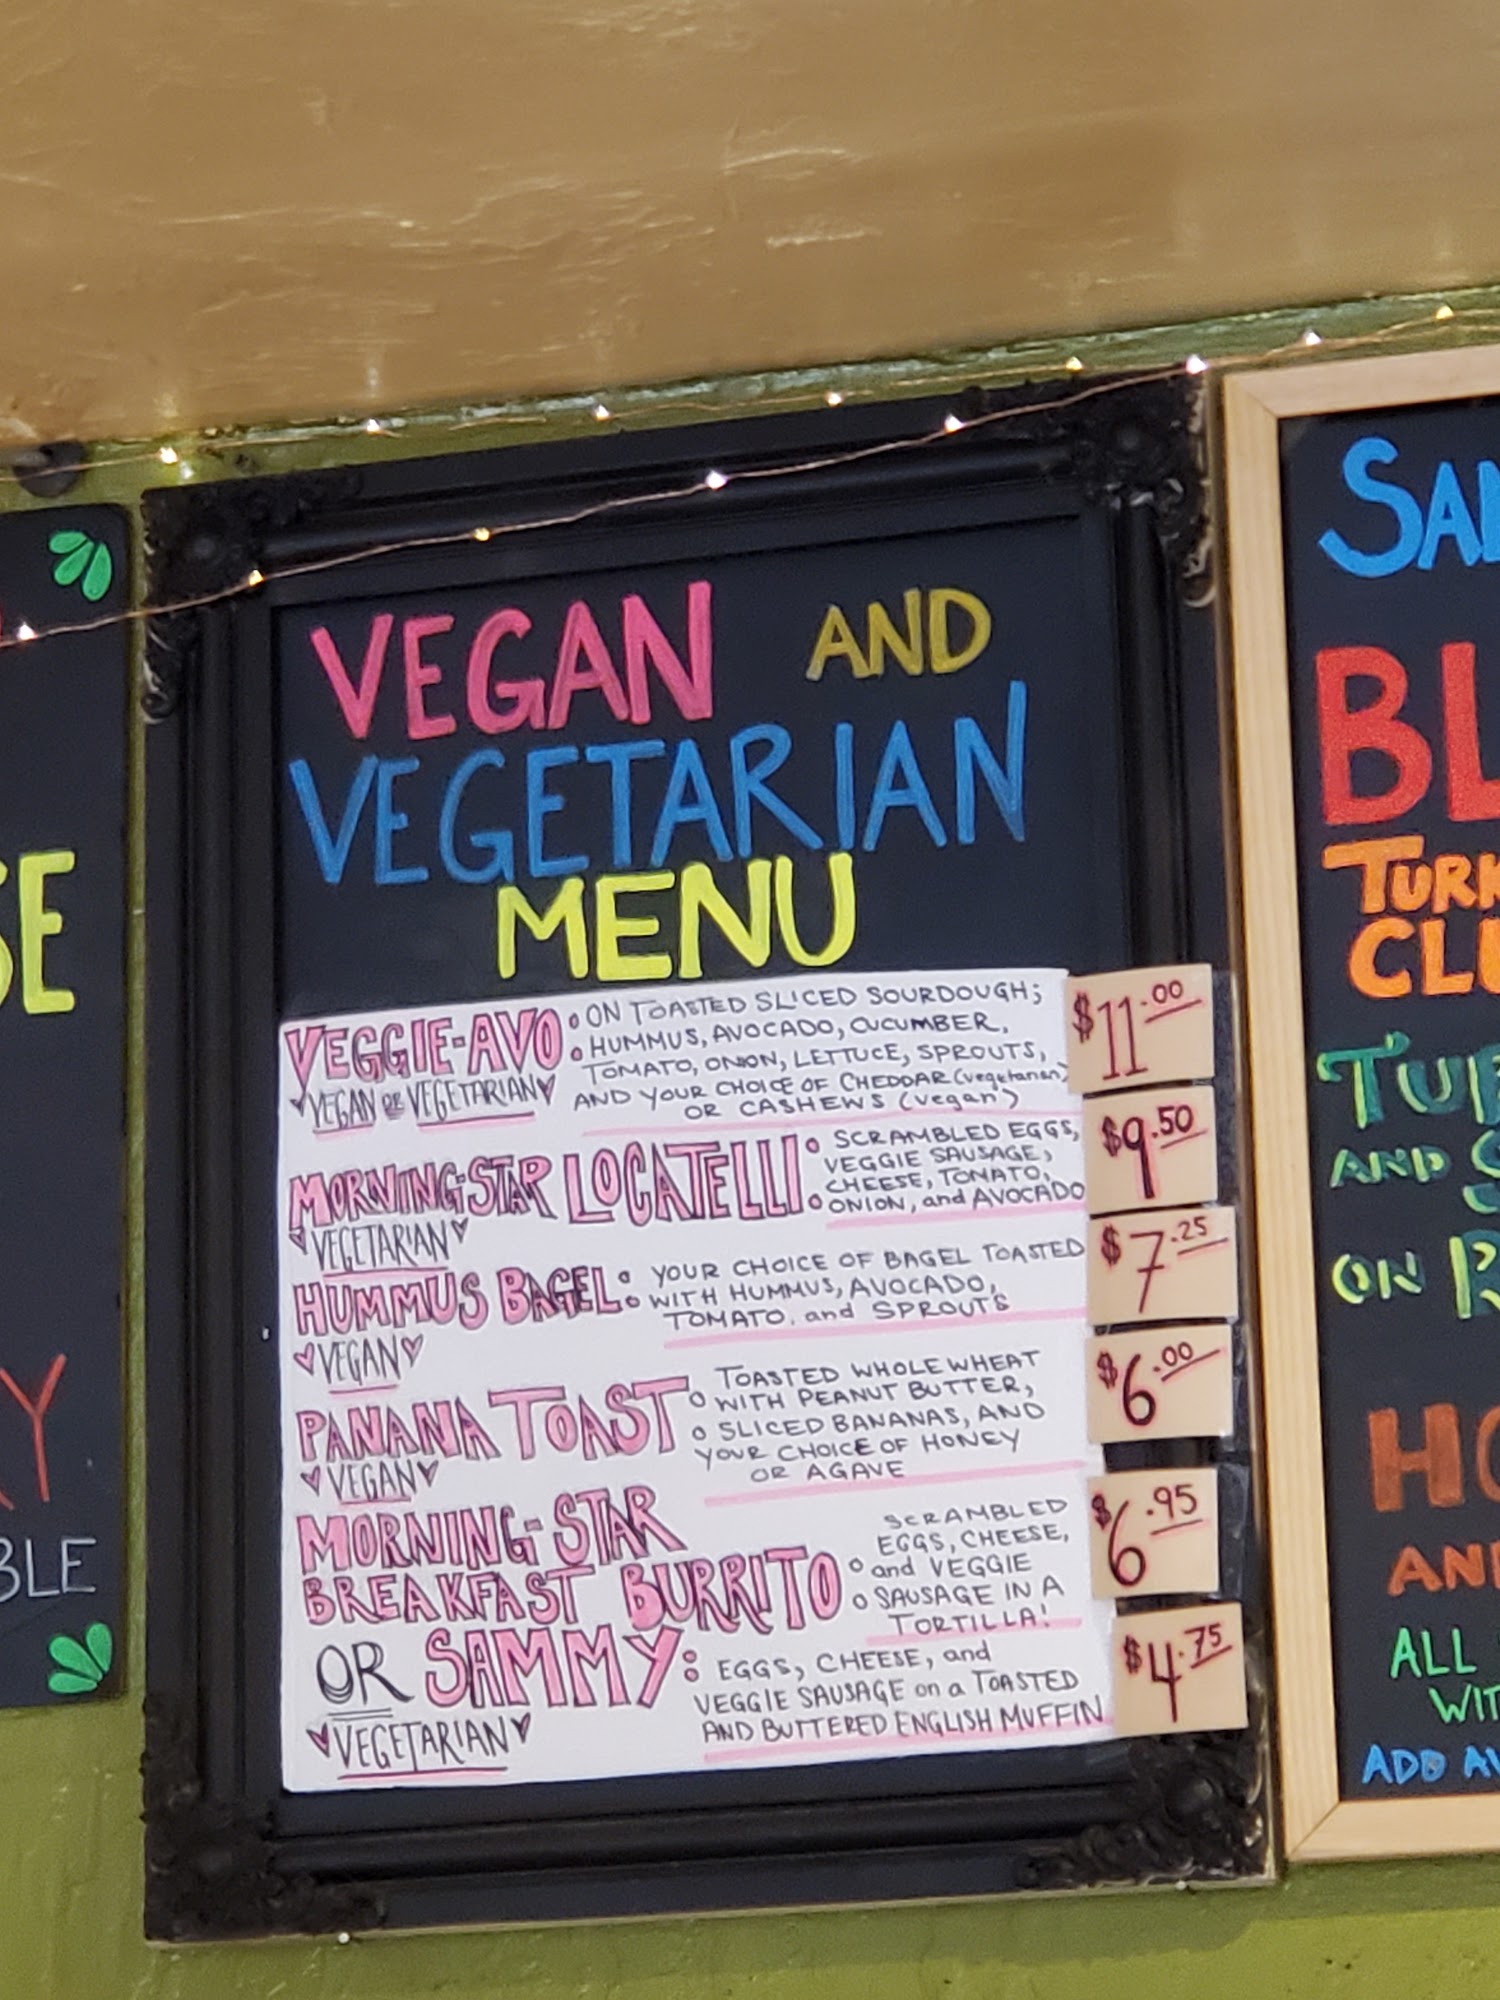 VEGAN AND
VEGETARIAN
MENU
VEGGIE-AVO:
VEGAN OR VEGETARIAN
ON TOASTED SLICED SOURDOUGH;
HUMMUS, AVOCADO, CUCUMBER,
TOMATO, ONION, LETTUCE, SPROUTS,
AND YOUR CHOICE OF CHEDDAR (vegetarian)
OR CASHEWS (vegan)
$11.00
MORNING-STAR LOCATELLI:
VEGETARIAN
SCRAMBLED EGGS,
VEGGIE SAUSAGE,
CHEESE, TOMATO,
ONION, and AVOCADO
$9.50
HUMMUS BAGEL:
VEGAN
YOUR CHOICE OF BAGEL TOASTED
WITH HUMMUS, AVOCADO,
TOMATO, and SPROUTS
$7.25
PANANA TOAST:
VEGAN
TOASTED WHOLE WHEAT
WITH PEANUT BUTTER,
SLICED BANANAS, AND
YOUR CHOICE OF HONEY
OR AGAVE
$6.00
MORNING-STAR
BREAKFAST BURRITO:
SCRAMBLED
EGGS, CHEESE,
and VEGGIE
SAUSAGE IN A
TORTILLA!
$6.95
OR SAMMY:
VEGETARIAN
EGGS, CHEESE, and
VEGGIE SAUSAGE on a TOASTED
AND BUTTERED ENGLISH MUFFIN
$4.75
SE
Y
BLE
SAN
BL
TURK
CLU
TU
AND
ON
HO
AND
ALL
WIT
ADD AV